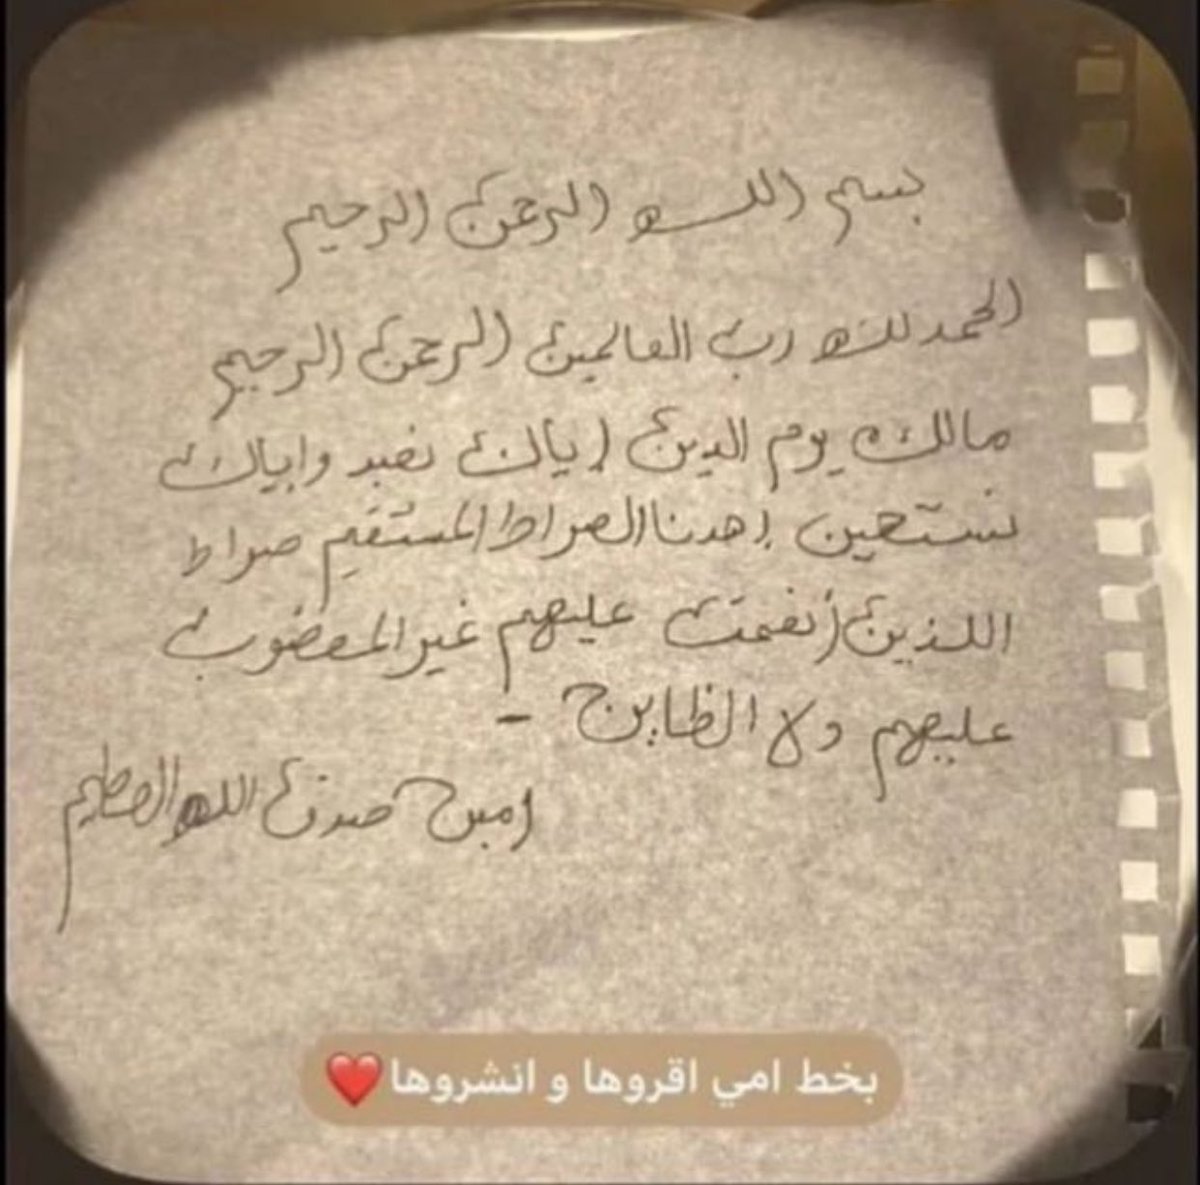 بسم الله الرحمن الرحيم
الحمد لله رب العالمين الرحمن الرحيم
مالك يوم الدين إياك نعبد واياك
نستعين إهدنا الصراط المستقيم صراط
اللذين أنعمت عليهم غير المغضوب
عليهم ولا الظاين -
امين صدق الله العظيم
بخط امي اقروها و انشروها❤️